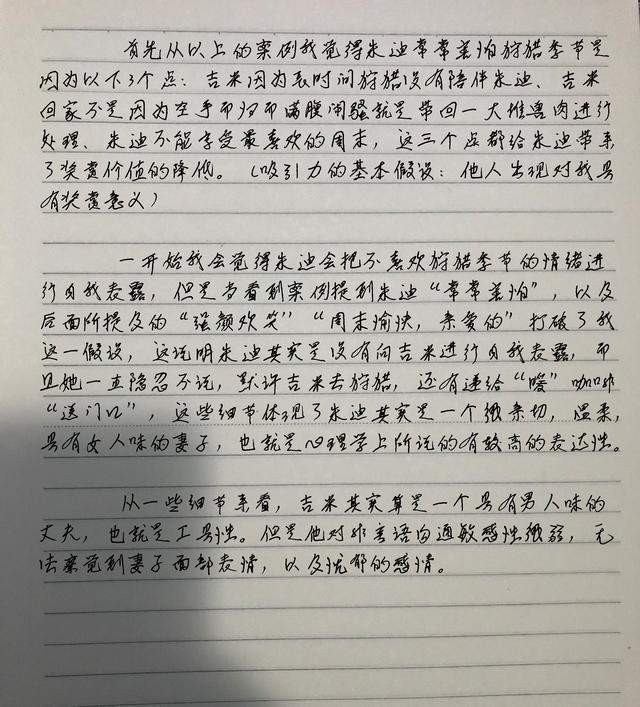 首先从以上的案例我觉得朱迪常常害怕狩猎季节是
因为以下3个点：吉米因为长时间狩猎没有陪伴朱迪、吉米
回家不是因为空手而归而满腹闹骚就是带回一大堆兽肉进行
处理、朱迪不能享受最喜欢的周末，这三个点都给朱迪带来
了奖赏价值的降低。（吸引力的基本假设：他人出现对我具
有奖赏意义）
一开始我会觉得朱迪会把不喜欢狩猎季节的情绪进
行自我表露，但是当看到案例提到朱迪“常常害怕”，以及
后面所提及的“强颜欢笑”“周末愉快，亲爱的”打破了我
这一假设，这说明朱迪其实是没有向吉米进行自我表露，而
且她一直隐忍不说，默许吉米去狩猎，还有递给“暖”咖啡
“送门口”，这些细节体现了朱迪其实是一个很亲切，温柔，
具有女人味的妻子，也就是心理学上所说的有较高的表达性。
从一些细节来看，吉米其实算是一个具有男人味的
丈夫，也就是工具性。但是他对非言语沟通敏感性很弱，无
法察觉到妻子面部表情，以及忧郁的感情。